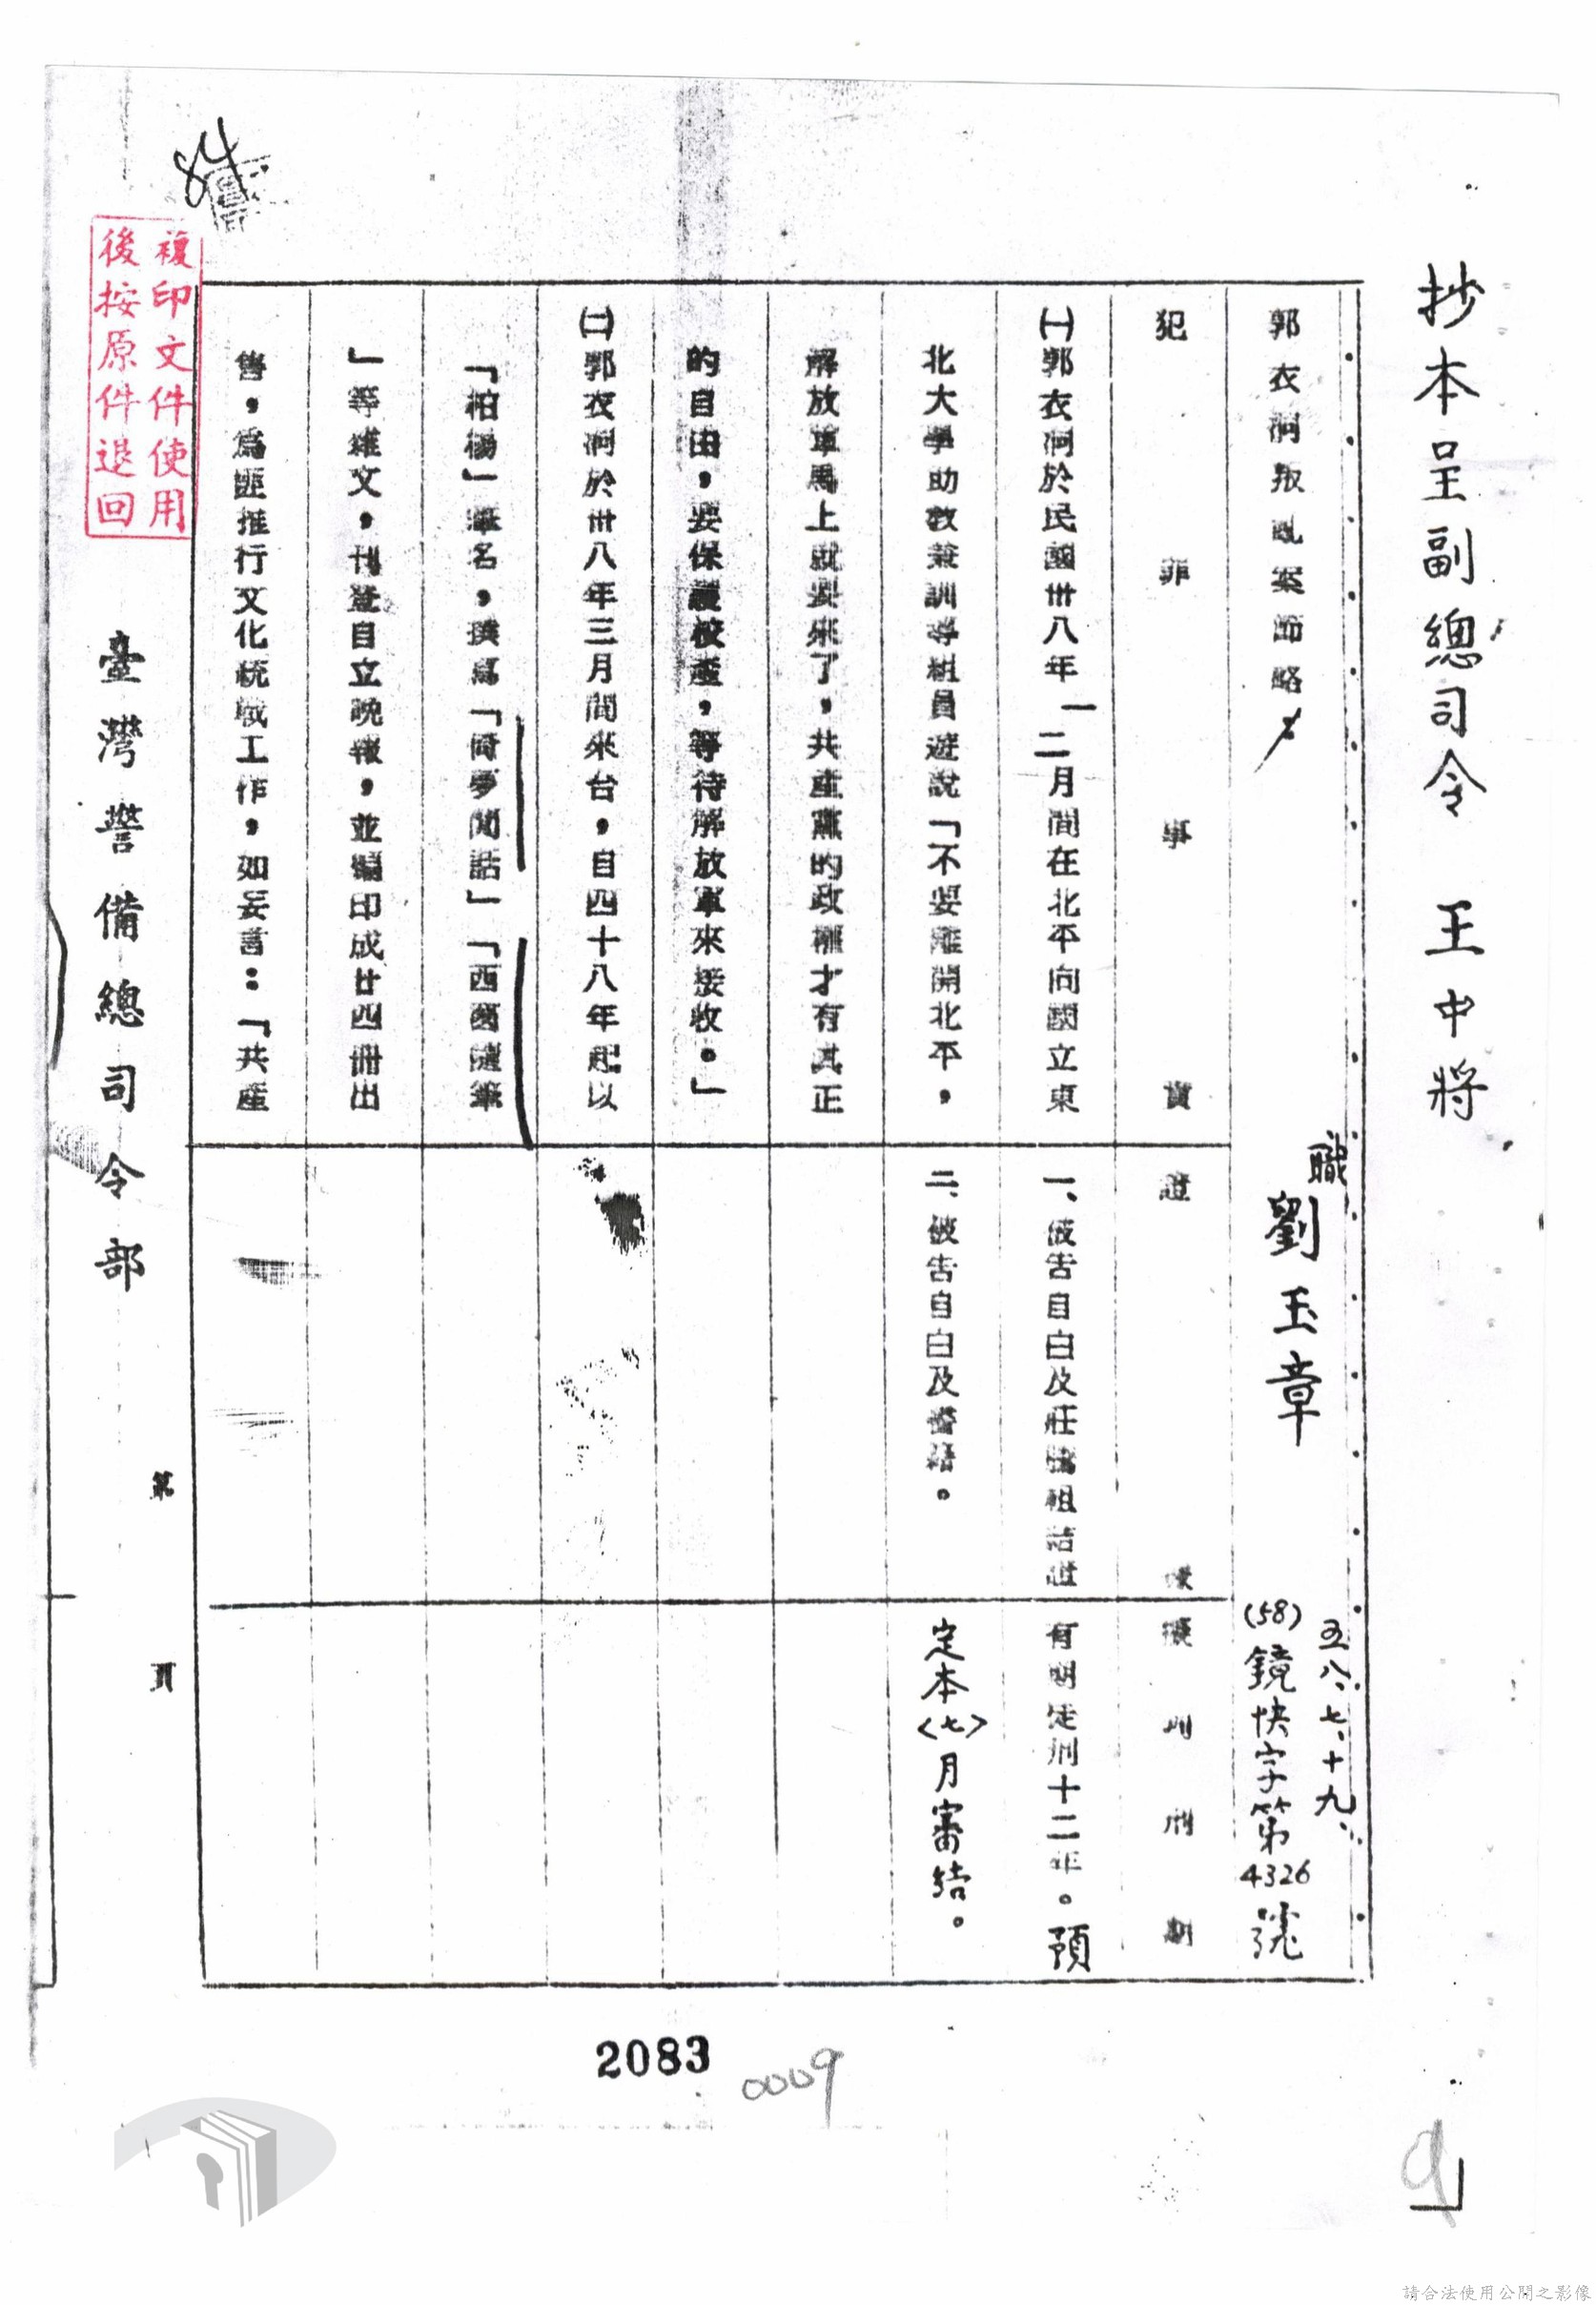 抄本呈副總司令 王中將
職 劉玉章
五八、七、十九、
(58)鏡快字第4326號
郭衣洞叛亂案節略
犯罪事實
證據
擬判刑期
㈠郭衣洞於民國卅八年一二月間在北平向國立東
北大學助教兼訓導組員遊說「不要離開北平,
解放軍馬上就要來了,共產黨的政權才有真正
的自由,要保護校產,等待解放軍來接收。」
㈡郭衣洞於卅八年三月間來台,自四十八年起以
「柏楊」筆名,撰寫「倚夢閒話」「西窗隨筆
」等雜文,刊登自立晚報,並編印成廿四冊出
售,為匪推行文化統戰工作,如妄言:「共產
一、被告自白及莊 祖 證
二、被告自白及書籍。
有期徒刑十二年。預
定本〈七〉月審結。
臺灣警備總司令部
第 頁
複印文件使用
後按原件退回
84
2083
0009
9
請合法使用公開之影像